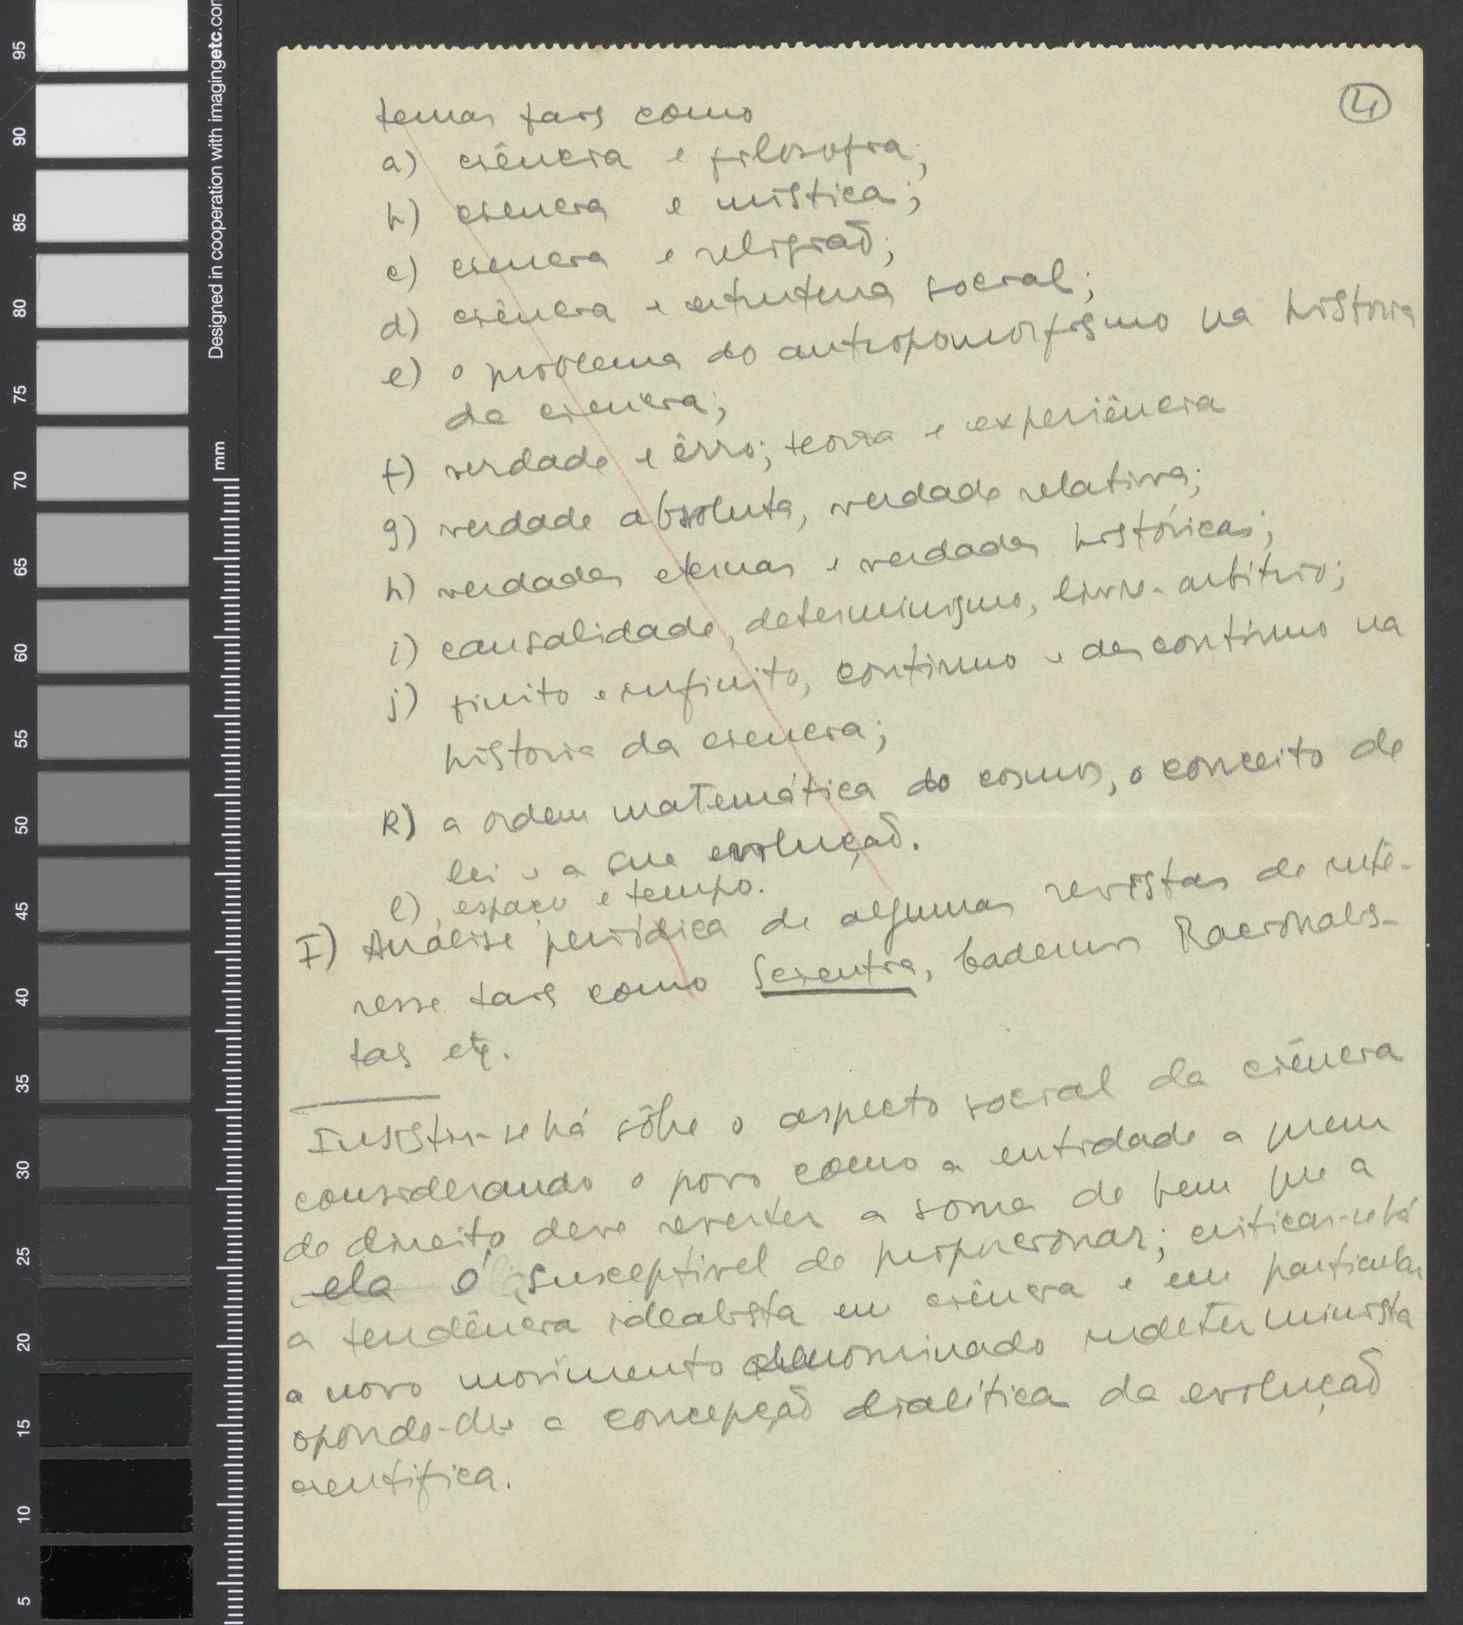 ④
temas tais como
a) ciência e filosofia;
b) ciencia e mística;
c) ciencia e religiaõ;
d) ciência e estrutura social;
e) o problema do antropomorfismo na historia
da ciencia;
f) verdade e êrro; teoria e experiência
g) verdade absoluta, verdade relativa;
h) verdades eternas e verdades históricas;
i) causalidade, determinismo, livre-arbítrio;
j) finito e infinito, continuo e descontínuo na
historia da ciencia;
k) a ordem matemática do cosmos, o conceito de
lei e a sua evoluçaõ.
l) espaço e tempo.
I) Análise periódica de algumas revistas de inte-
resse tais como Scientia, Cadernos Racionalis-
tas etc.
Insistir-se há sôbre o aspecto social da ciência
considerando o povo como a entidade a quem
de direito deve reverter a soma de bem que a
ela é susceptivel de proporcionar; criticar-se há
a tendência idealista em ciência e em particular
o novo movimento denominado indeterminista
opondo-lhe a concepçaõ dialítica da evoluçaõ
cientifica.
Designed in cooperation with imagingetc.com
mm
95
90
85
80
75
70
65
60
55
50
45
40
35
30
25
20
15
10
5